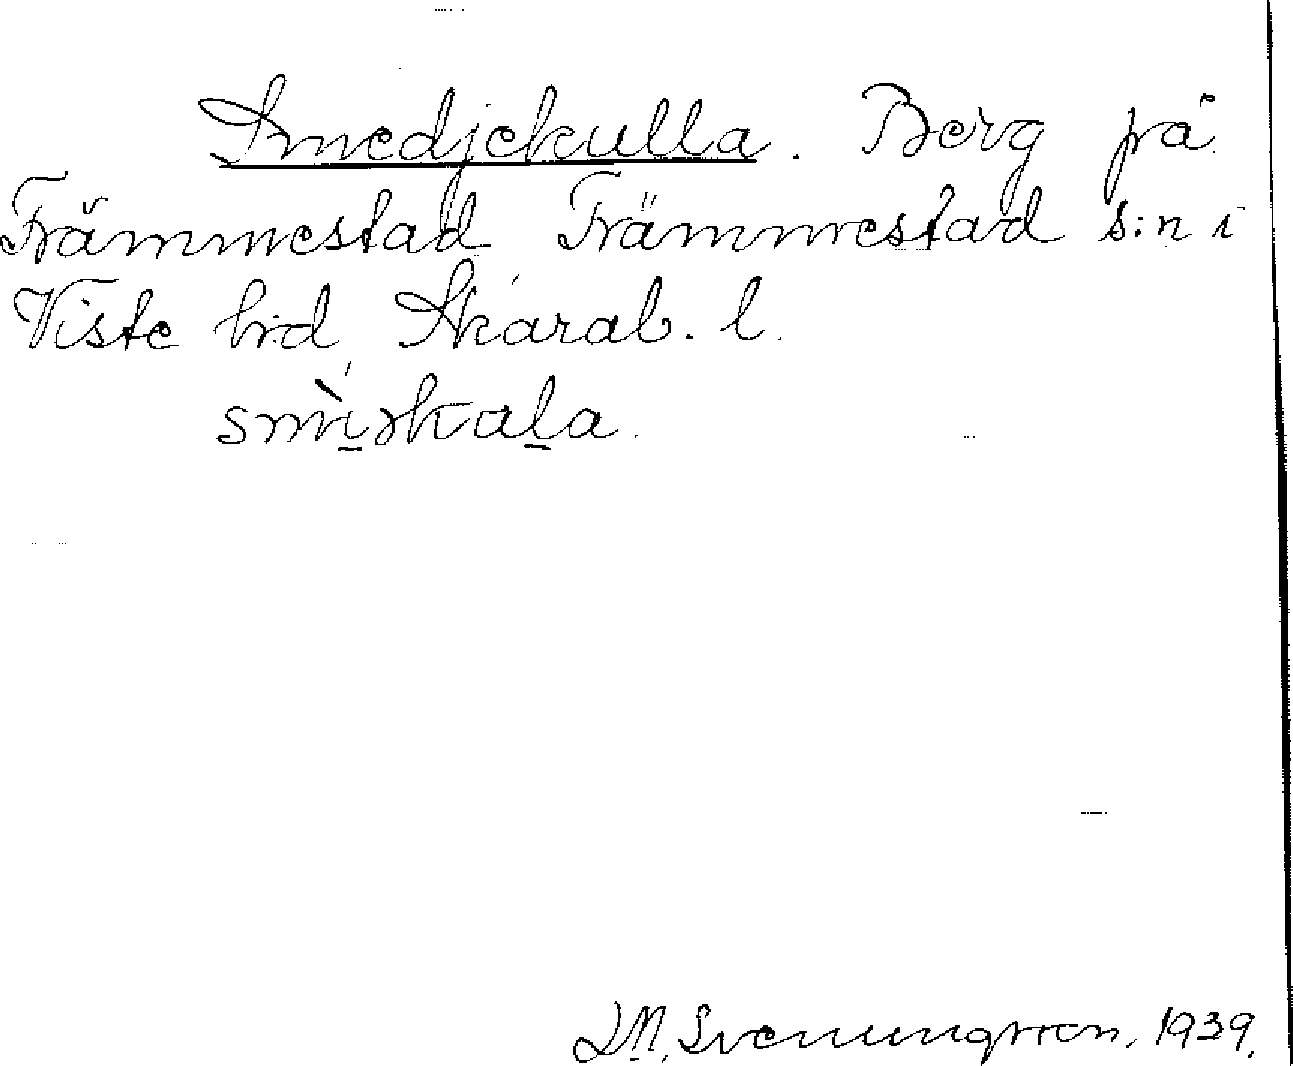 Smedjekulla. Berg på
Främmestad Främmestad s:n i
Viste hd, Skarab. l.
smìskala.
D.M. Svenungsson, 1939.